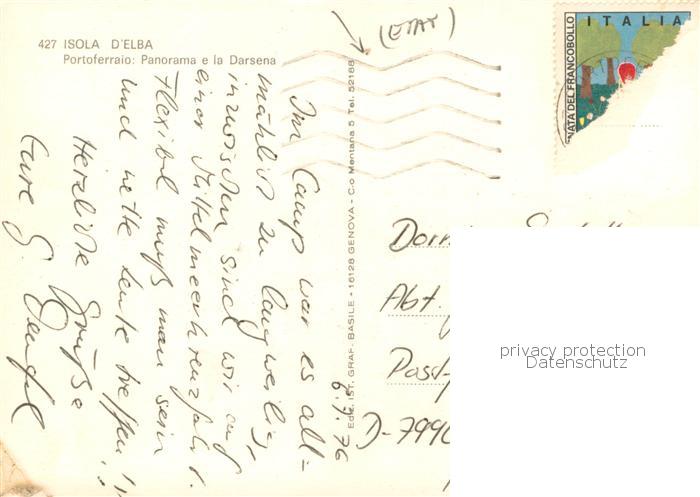 427 ISOLA D'ELBA
Portoferraio: Panorama e la Darsena
(ETAY)
ITALIA
NATA DEL FRANCOBOLLO
Ediz. IST. GRAF. BASILE - 16128 GENOVA - C.o Mentana 5 Tel. 52168
6.7.76
Im Camp war es all=
mählich zu langweilig,
inzwischen sind wir auf
einer Mittelmeerkreuzfahrt.
Flexibel muß man sein
und nette Leute treffen!!
Herzliche Grüße
Eure G.
Dorn
Abt.
Post
D-7990
privacy protection
Datenschutz